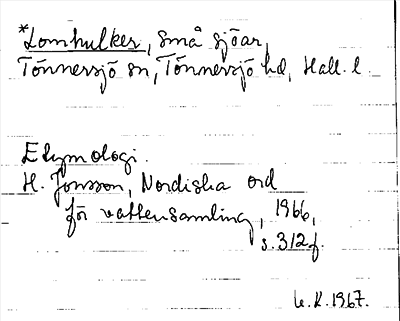 *Lomhulker, små sjöar,
Tönnersjö sn, Tönnersjö hd, Hall. l.
Etymologi.
H. Jonsson, Nordiska ord
för vattensamling, 1966,
s. 312f.
K. 1967.